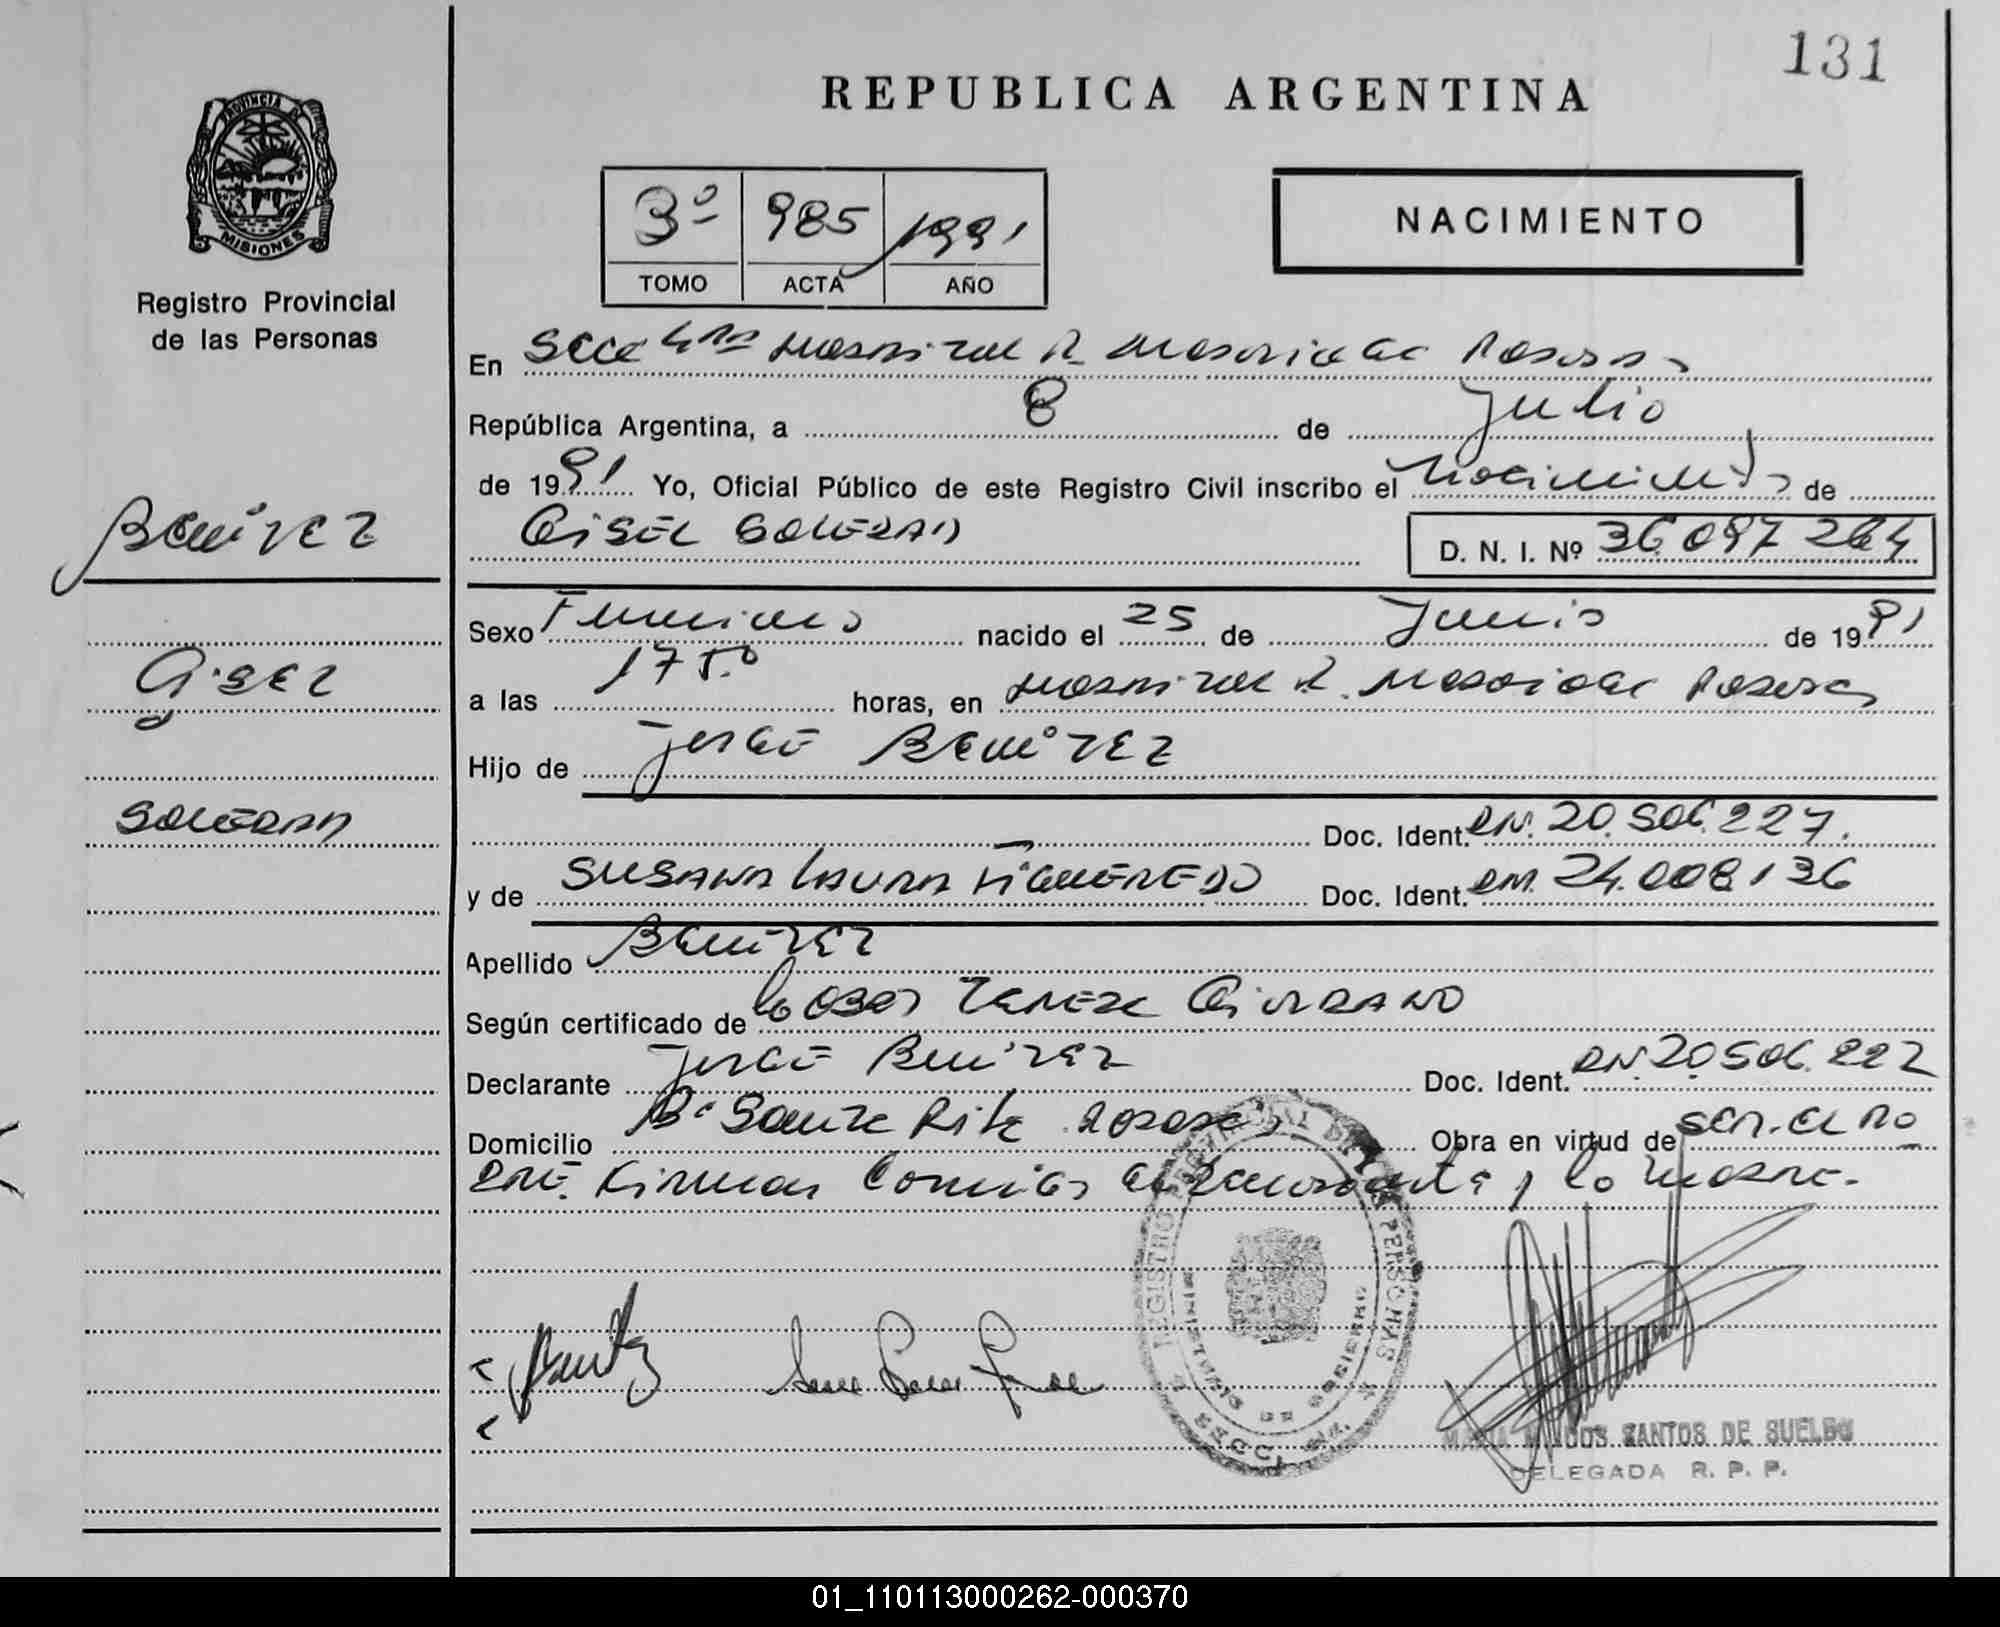 131
REPUBLICA ARGENTINA
PROVINCIA DE
MISIONES
Registro Provincial
de las Personas
3º 985 1991
TOMO ACTA AÑO
NACIMIENTO
En Secc 4ta Hospital R. Madariaga Posadas
República Argentina, a 8 de Julio
de 1991 Yo, Oficial Público de este Registro Civil inscribo el Nacimiento de
Gisel Soledad D. N. I. Nº 36.097.264
Benitez
Gisel
Soledad
Sexo Femenino nacido el 25 de Junio de 1991
a las 1750 horas, en Hospital R. Madariaga Posadas
Hijo de Jorge Benitez
Doc. Ident. DNI. 20.506.227.
y de Susana Laura Figueredo Doc. Ident. DNI. 24.008136
Apellido Benitez
Según certificado de Giordano
Declarante Jorge Benitez Doc. Ident. DNI 20506.227
Domicilio Bº Santa Rita Posadas Obra en virtud de ser el pa
dre. Firman Conmigo el declarante y la madre.
REGISTRO PROVINCIAL DE LAS PERSONAS
MINISTERIO DE GOBIERNO
SECC.
MARIA SANTOS DE SUELDO
DELEGADA R. P. P.
01_110113000262-000370